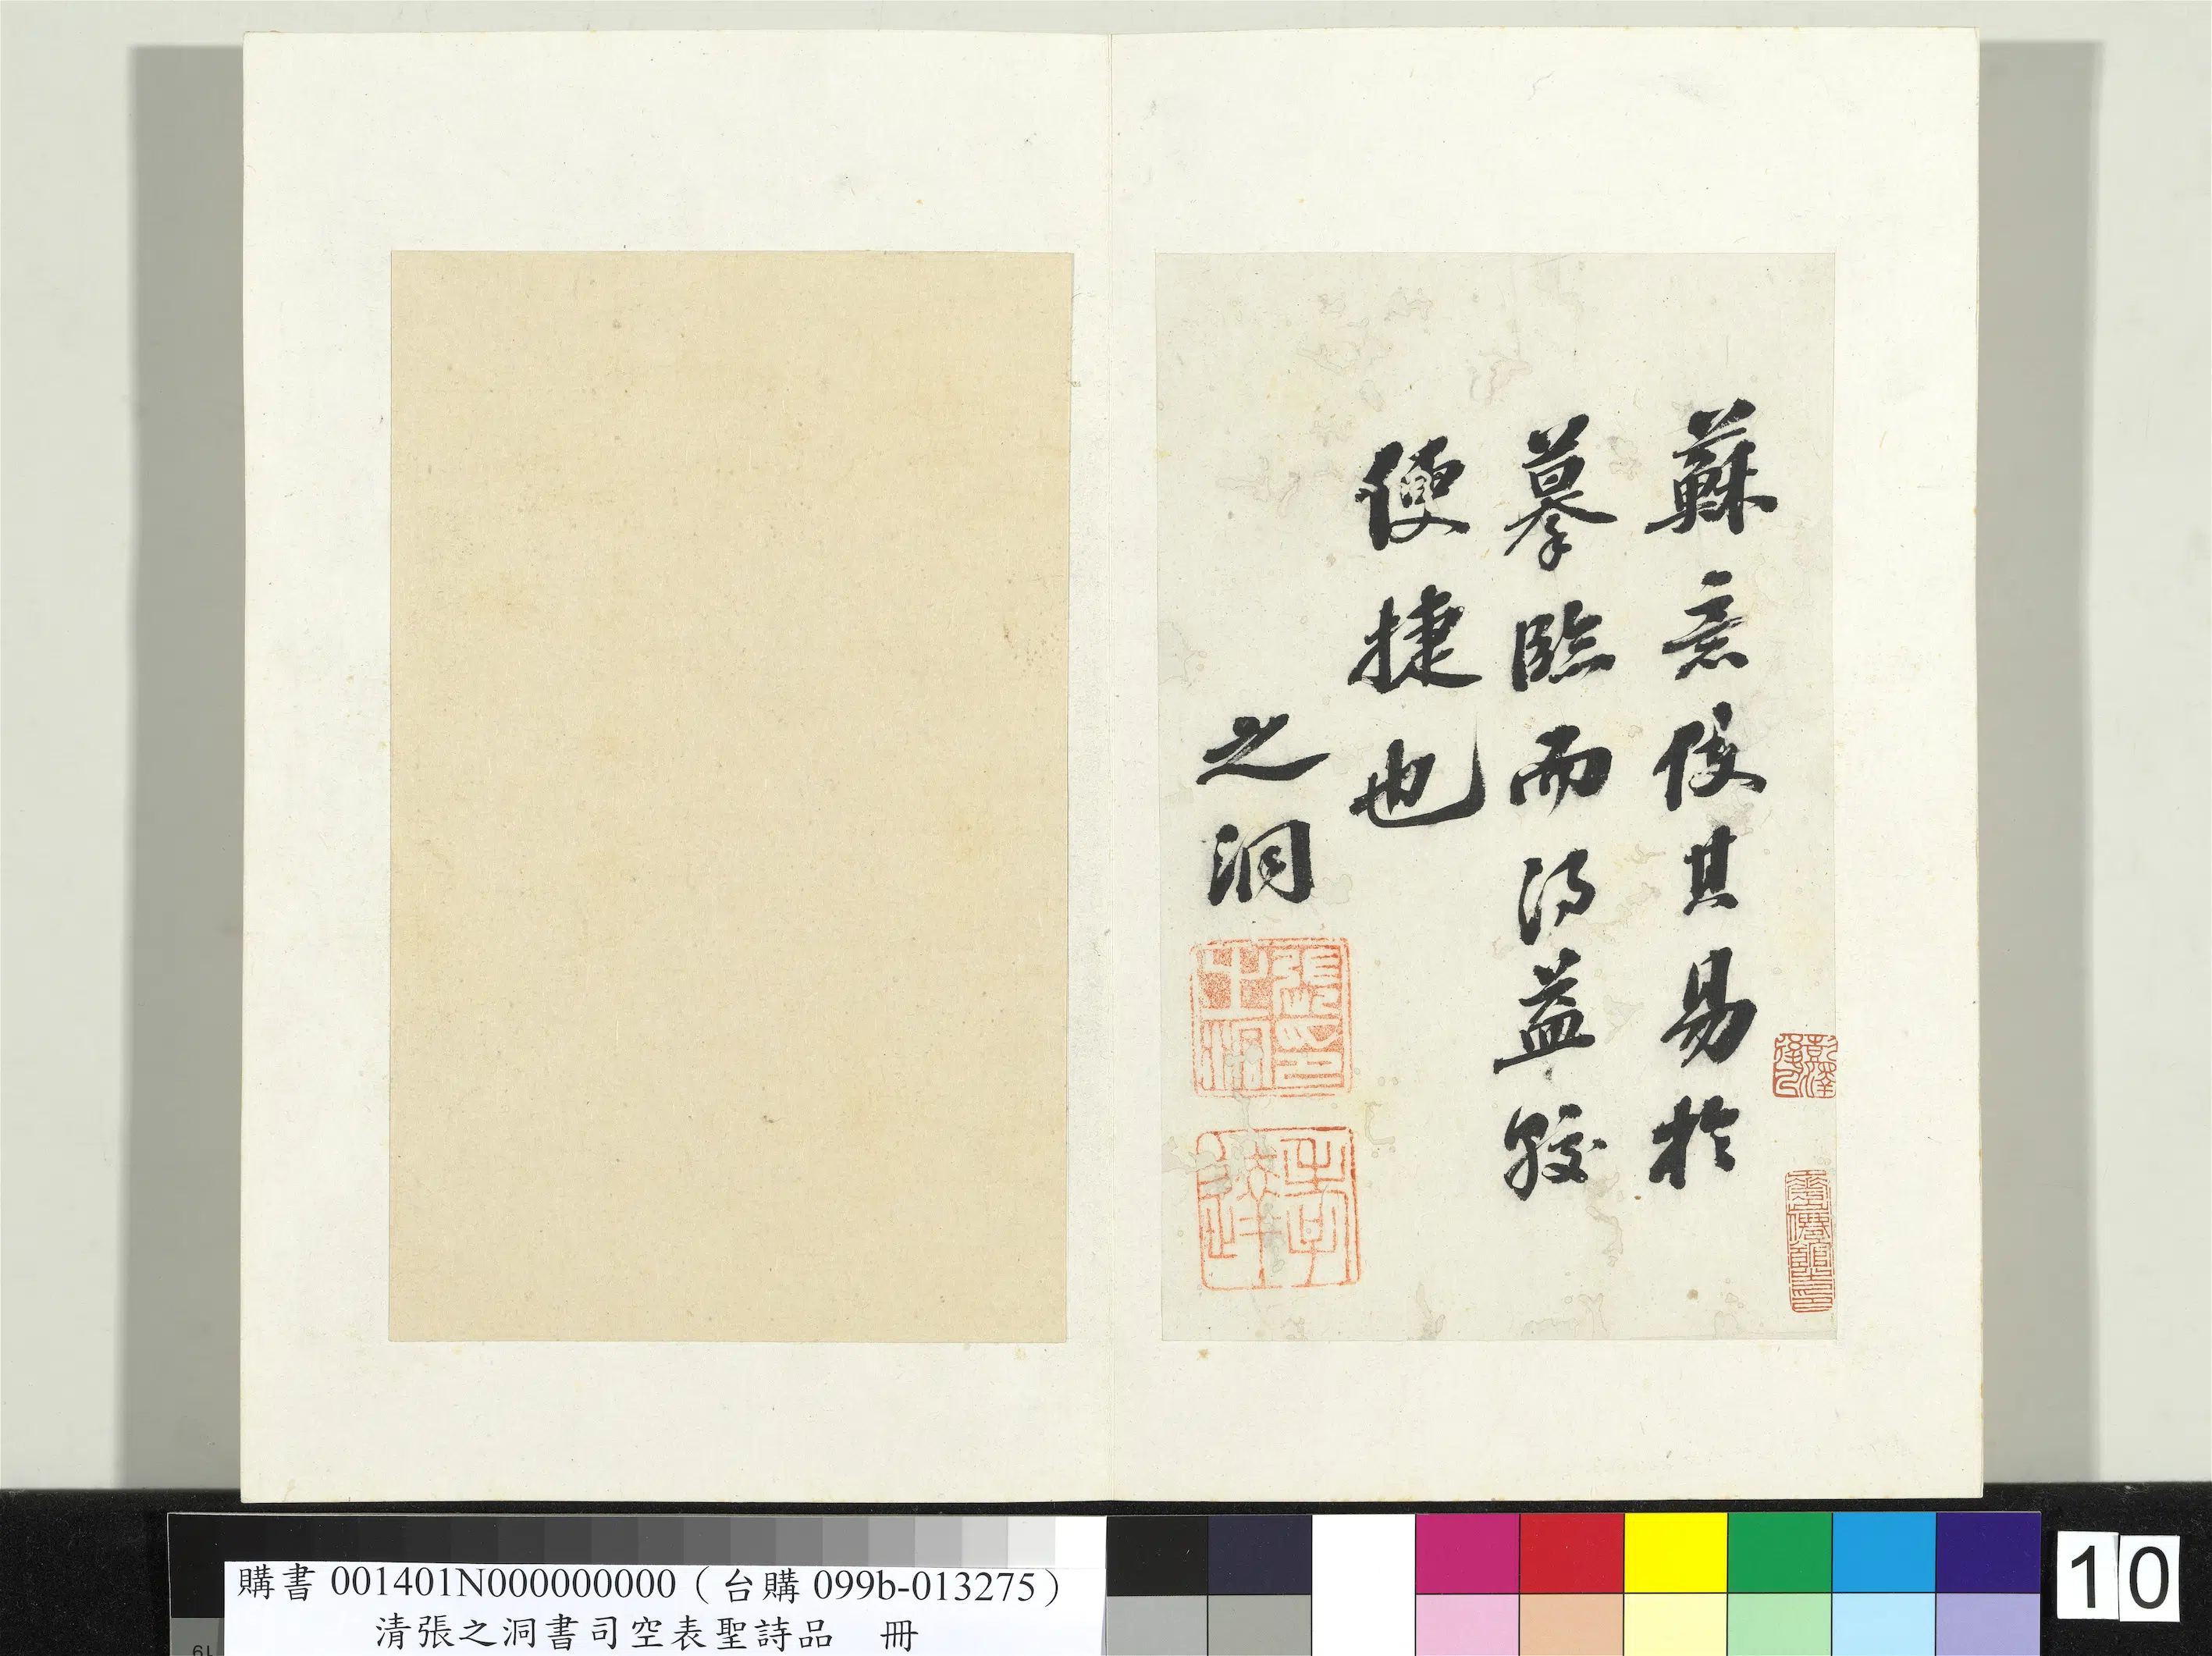 蘇意使其易於
摹臨而得益較
便捷也
之洞
張之洞印
孝達
購書 001401N000000000（台購 099b-013275）
清張之洞書司空表聖詩品　冊
10
19